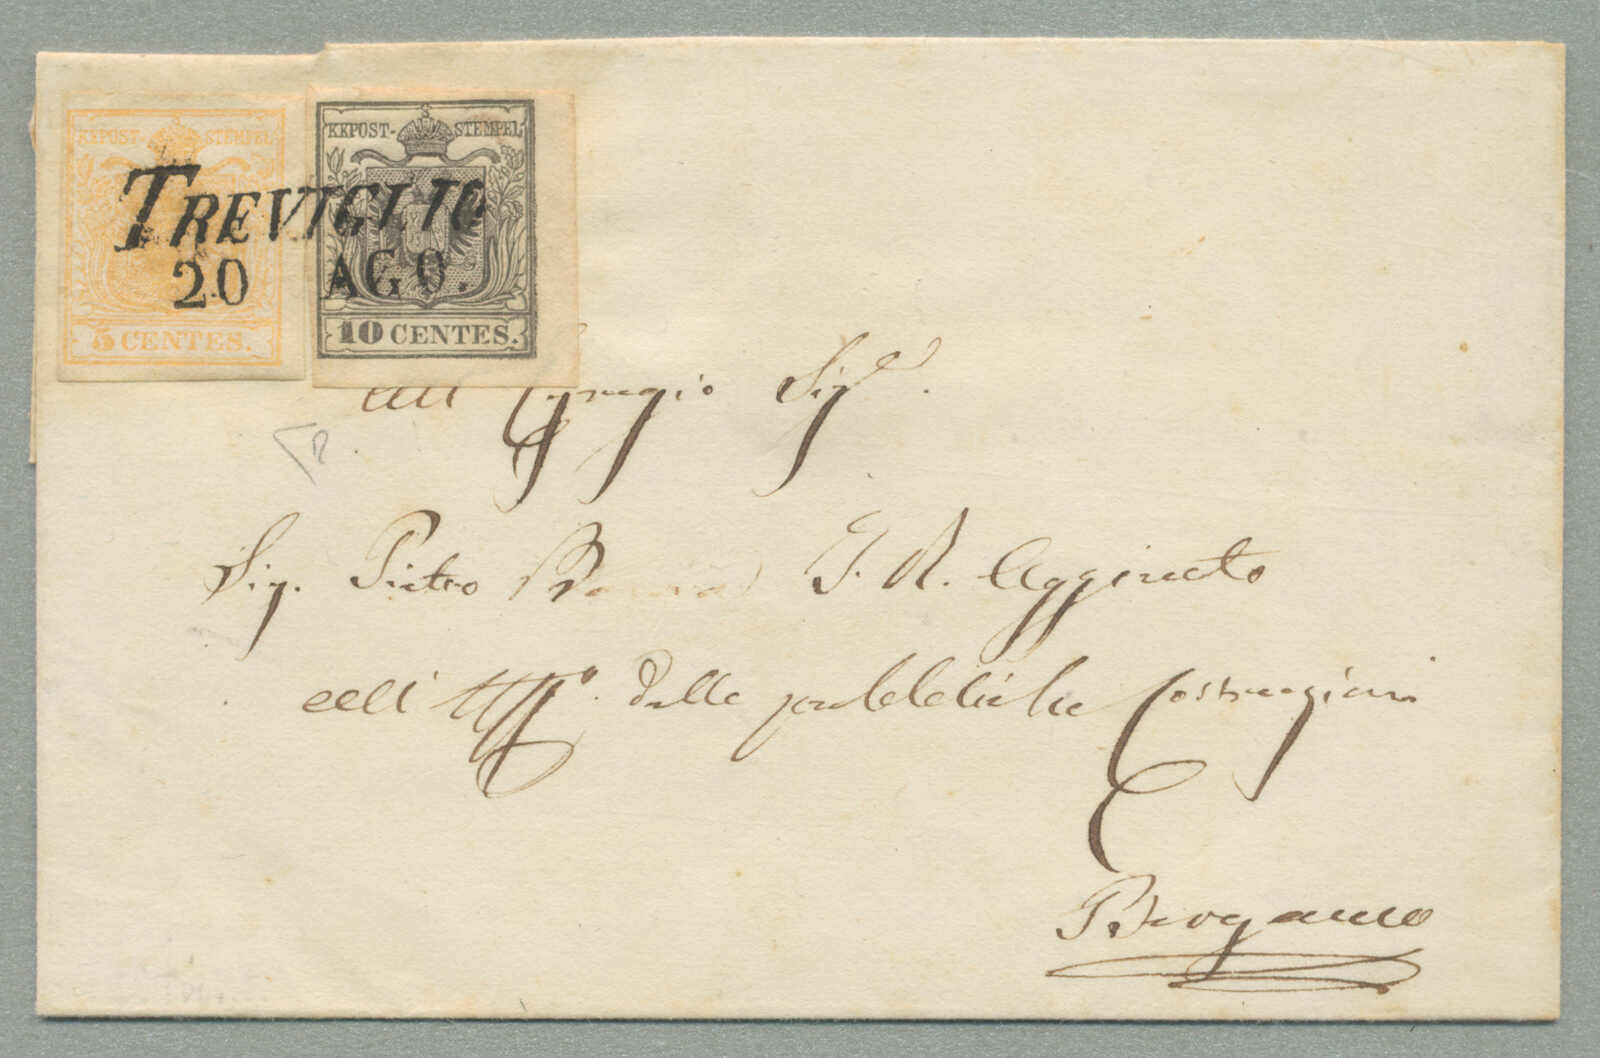 KKPOST-STEMPEL KKPOST-STEMPEL
TREVIGLIO
20 AGO.
5 CENTES. 10 CENTES.
All' Egregio Sigr.
Sig. Pietro I. R. Aggiunto
all' Uffo. delle pubbliche Costruzioni
Bergamo